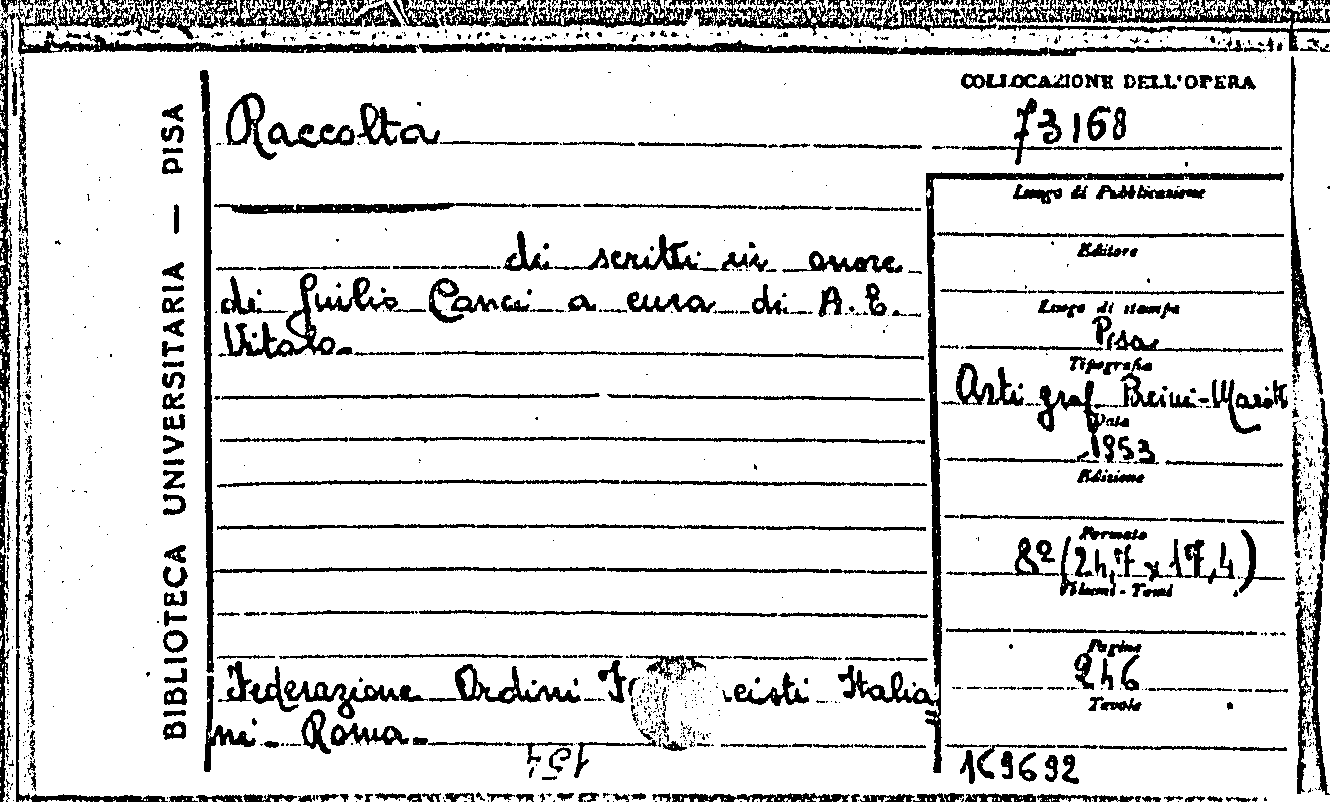 BIBLIOTECA UNIVERSITARIA — PISA
COLLOCAZIONE DELL'OPERA
73168
Raccolta
di scritti in onore
di Giulio Conci a cura di A. E.
Vitolo.
Luogo di Pubblicazione
Editore
Luogo di stampa
Pisa
Tipografia
Arti graf Pacini-Mariotti
Data
1953
Edizione
Formato
8º (24,7 x 17,4)
Volumi - Tomi
Pagine
246
Tavole
Federazione Ordini cisti Italia
ni - Roma.
154
169692